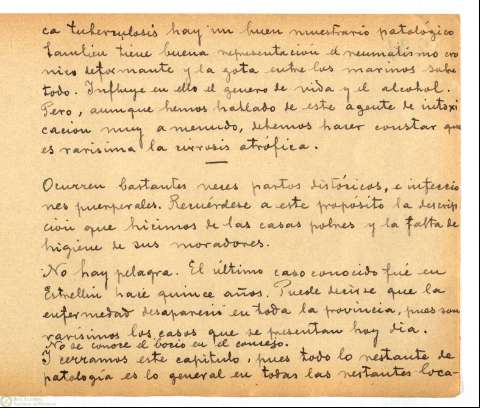 ca tuberculosis hay un buen muestrario patológico
Tambien tiene buena representación el reumatismo cro
nico deformante y la gota entre los marinos sobre
todo. Influye en ello el genero de vida y el alcohol.
Pero, aunque hemos hablado de este agente de intoxi
cacion muy a menudo, debemos hacer constar que
es rarisima la cirrosis atrófica.
Ocurren bastantes veces partos distósicos, e infeccio
nes puerperales. Recuérdese a este propósito la descrip
ción que hicimos de las casas pobres y la falta de
higiene de sus moradores.
No hay pelagra. El último caso conocido fué en
Estrellin hace quince años. Puede decirse que la
enfermedad desapareció en toda la provincia, pues son
rarísimos los casos que se presentan hoy dia.
No se conoce el bocio en el concejo.
Y cerramos este capitulo, pues todo lo restante de
patología es lo general en todas las restantes loca-